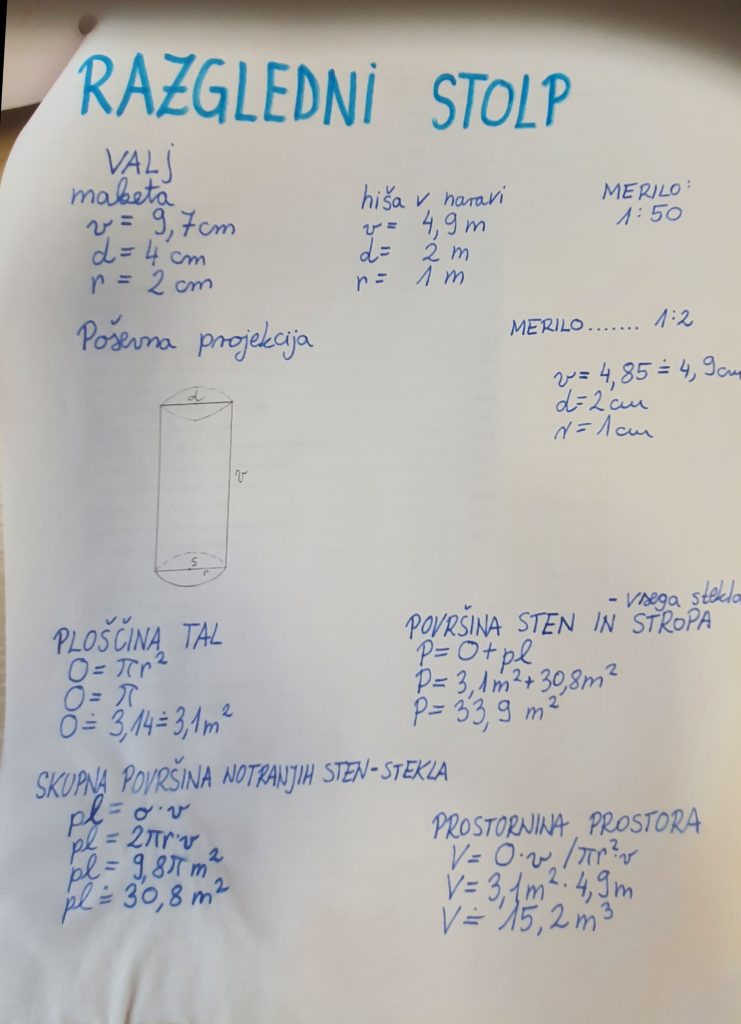 RAZGLEDNI STOLP
VALJ
maketa
v = 9,7cm
d = 4 cm
r = 2 cm
hiša v naravi
v = 4,9 m
d = 2 m
r = 1 m
MERILO:
1:50
Poševna projekcija
MERILO....... 1:2
v = 4,85 ≐ 4,9cm
d=2cm
r = 1cm
d
v
S
r
PLOŠČINA TAL
O = πr²
O = π
O ≐ 3,14 ≐ 3,1m²
- vsega stekla
POVRŠINA STEN IN STROPA
P= O + pl
P= 3,1m² + 30,8m²
P= 33,9 m²
SKUPNA POVRŠINA NOTRANJIH STEN-STEKLA
pl = o·v
pl = 2πr·v
pl = 9,8π m²
pl ≐ 30,8 m²
PROSTORNINA PROSTORA
V= O·v /πr²·v
V= 3,1m² · 4,9m
V ≐ 15,2 m³